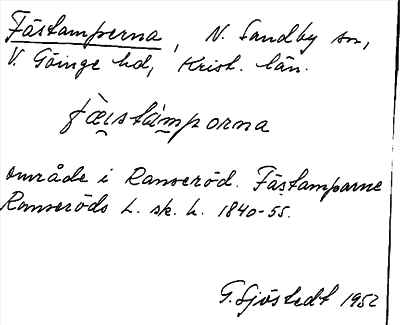 Fästamperna, N. Sandby sn,
V. Göinge hd, Krist. län.
fæ̀ıstàmporna
område i Ranseröd. Fästamparne
Ranseröds h. sk. h. 1840-55.
G. Sjöstedt 1952